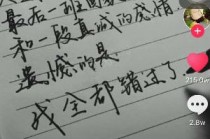 最后一班图书
和一段真诚的感情
遗憾的是
我全都错过了
215.0w
2.8w